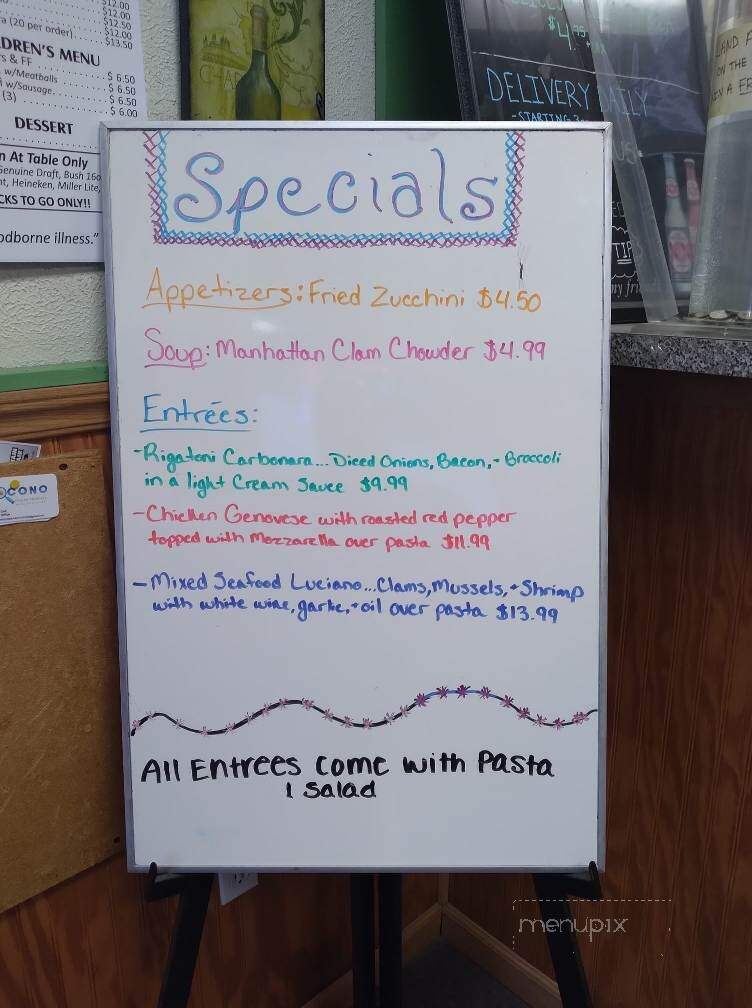 $12.00
$12.00
$12.50
a (20 per order) $12.00
$13.50
DREN'S MENU
s & FF $ 6.50
w/Meatballs $ 6.50
w/Sausage $ 6.50
(3) $ 6.00
DESSERT
n At Table Only
Genuine Draft, Bush 16o
nt, Heineken, Miller Lite,
CKS TO GO ONLY!!
odborne illness."
DELIVERY DAILY
-STARTING
LAND
ON THE
IN A
TIP
my fri
OCONO
Specials
Appetizers: Fried Zucchini $4.50
Soup: Manhattan Clam Chowder $4.99
Entrées:
-Rigatoni Carbonara... Diced Onions, Bacon, + Broccoli
in a light Cream Sauce $9.99
-Chicken Genovese with roasted red pepper
topped with Mozzarella over pasta $11.99
-Mixed Seafood Luciano... Clams, Mussels, + Shrimp
with white wine, garlic, + oil over pasta $13.99
All Entrees come with Pasta
1 Salad
menupix